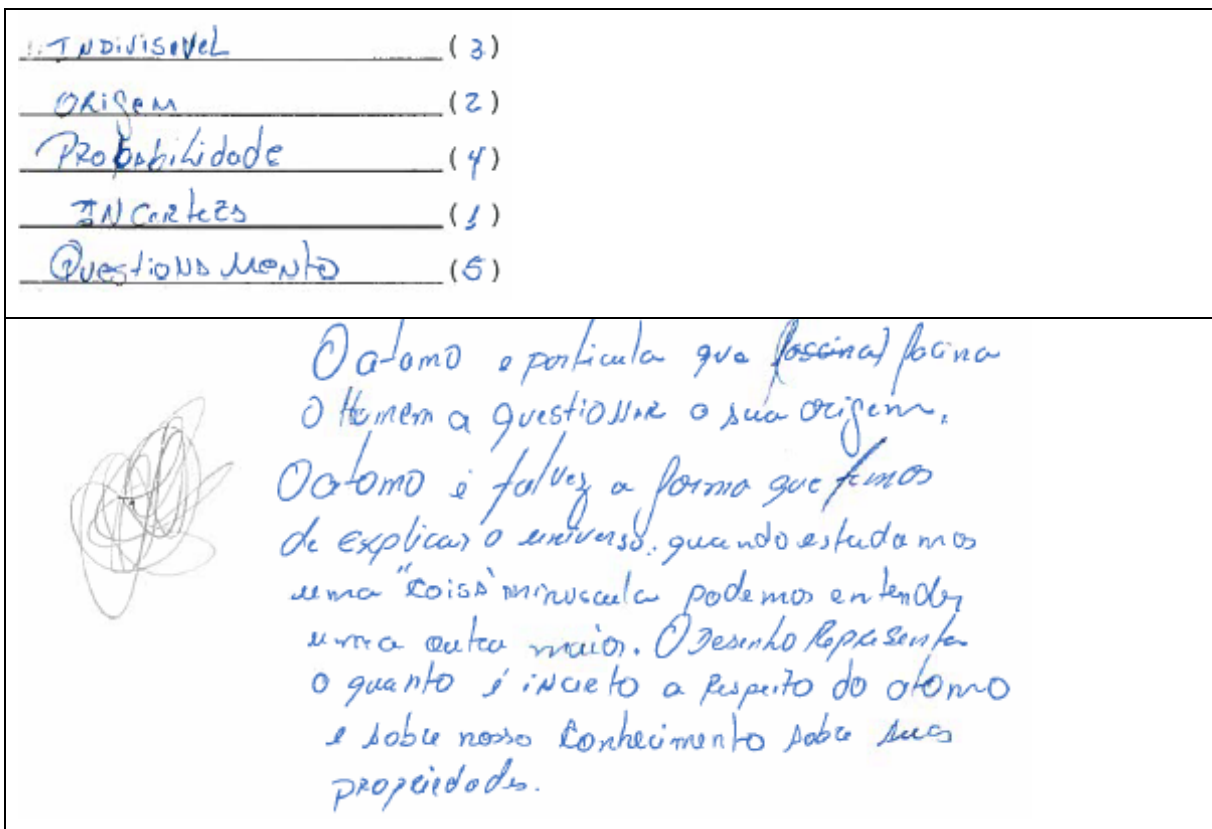 Indivisivel (3)
Origem (2)
Probabilidade (4)
Incerteza (1)
Questionamento (5)
O atomo e particula que (fascina) facina
o Homem a questionar a sua origem.
O atomo é talvez a forma que temos
de explicar o universo, quando estudamos
uma "coisa" minuscula podemos entender
uma outra maior. O Desenho Representa
o quanto é incerto a respeito do atomo
e sobre nosso conhecimento sobre suas
propriedades.